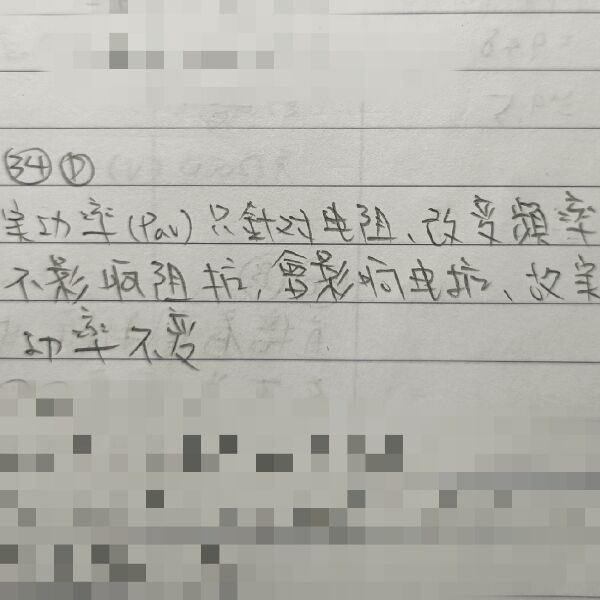 ㉞ Ⓓ
实功率(Pav)只針对电阻、改变頻率
不影响阻抗,會影响电抗、故实
功率不变